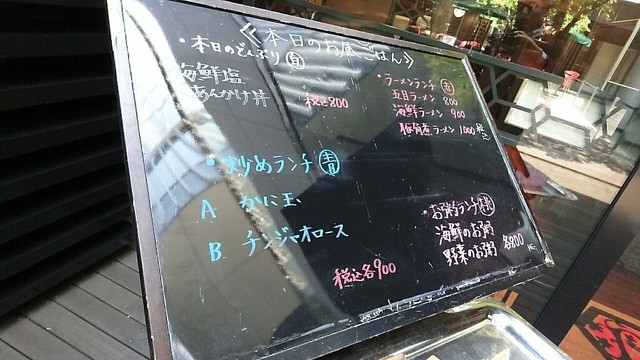 《本日のお昼ごはん》
・本日のどんぶり
海鮮塩
あんかけ丼
税込800
・ラーメンランチ
五目ラーメン 800
海鮮ラーメン 900
豚角煮ラーメン 1000 税込
・炒めランチ 青
A かに玉
B チンジャオロース
税込各900
・お粥ランチ
海鮮のお粥
野菜のお粥 各800